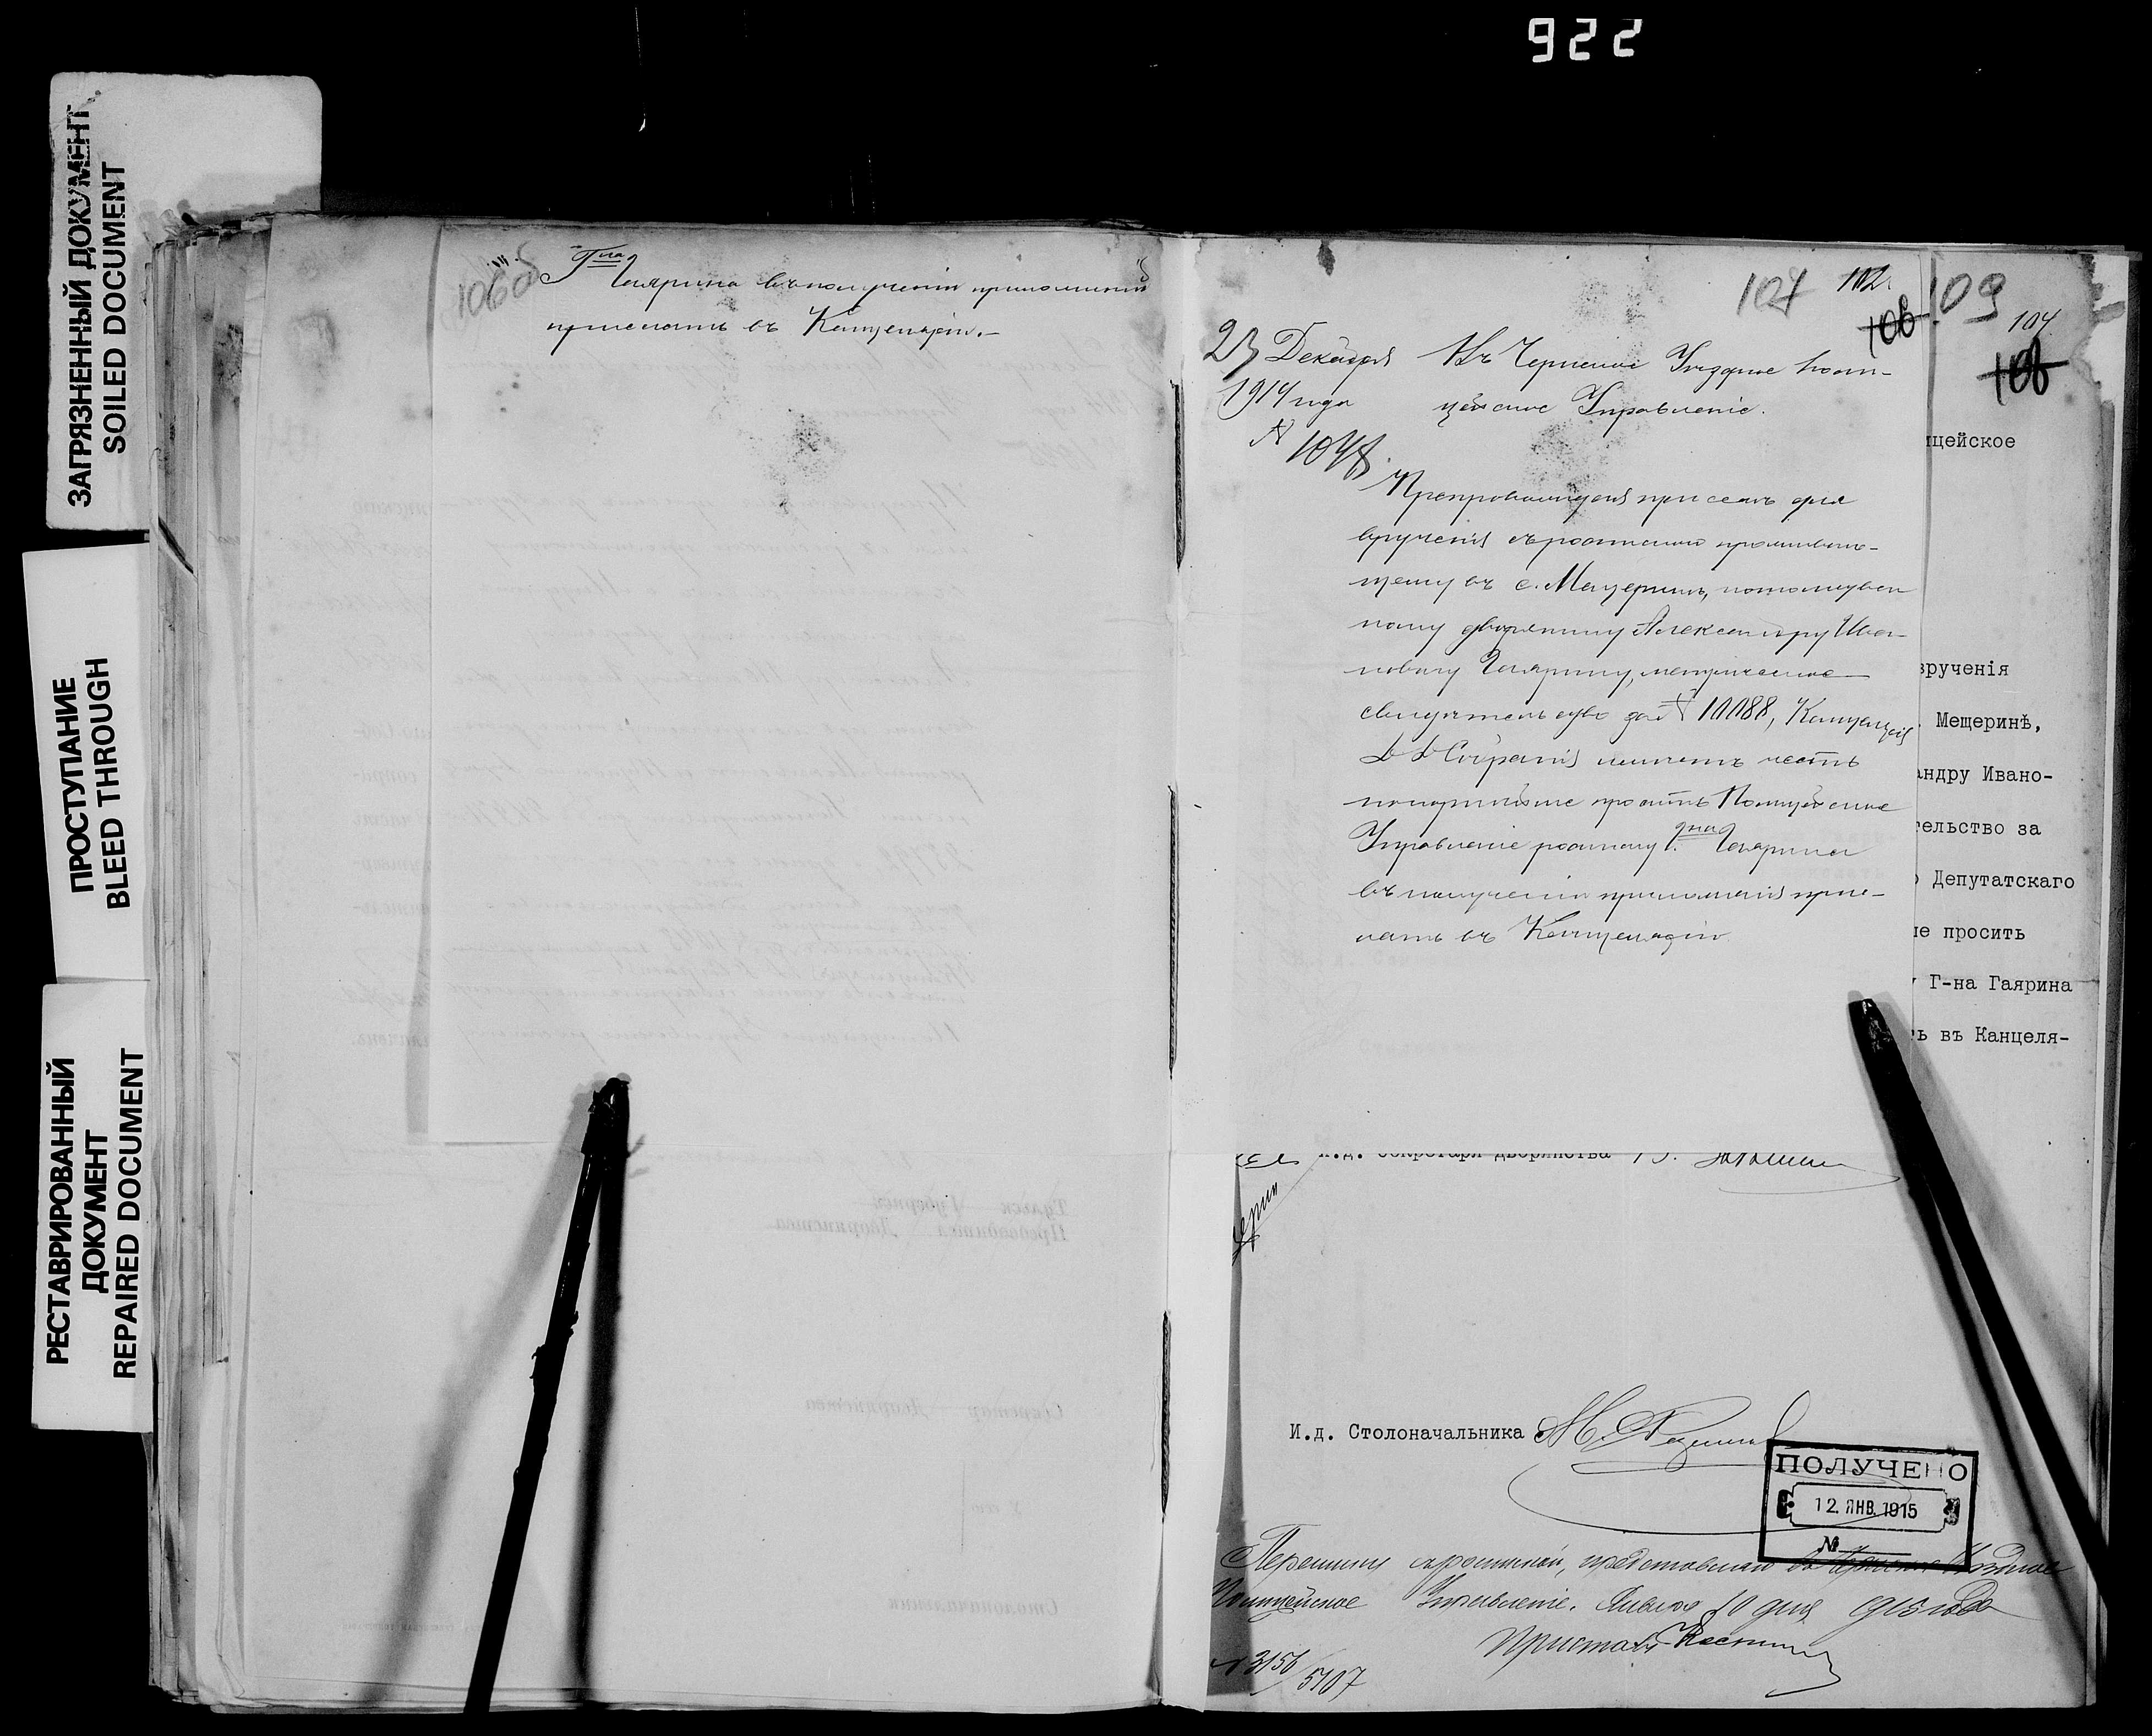 922
ЗАГРЯЗНЕННЫЙ ДОКУМЕНТ
SOILED DOCUMENT
ПРОСТУПАНИЕ
BLEED THROUGH
РЕСТАВРИРОВАННЫЙ
ДОКУМЕНТ
REPAIRED DOCUMENT
106об
Г-на Гаярина въ полученіи приложенія
прислать въ Канцелярію.
107 102.
106
23 Декабря
1914 года
№
Въ Чернское Уѣздное Поли-
цейское Управленіе.
Препровождая при семъ для
врученія съ роспискою проживаю-
щему въ с. Мещеринѣ, потомствен
ному дворянину Александру Ива-
новичу Гаярину, метрическое
свидѣтельство за № 10088, Канцелярія
Д Д Собранія имѣетъ честь
покорнѣйше просить Полицейское
Управленіе росписку Г-на Гаярина
въ полученіи приложенія прис-
лать въ Канцелярію.
109
104
106
цейское
врученія
Мещеринѣ,
андру Ивано-
тельство за
Депутатскаго
просить
Г-на Гаярина
въ Канцеля-
И.д. Секретаря Дворянства
И.д. Столоначальника
ПОЛУЧЕНО
12. ЯНВ. 1915
№
Переписку съ роспиской, представляю въ Чернское Уѣздное
Полицейское Управленіе. Января 10 дня 1915 года
Приставъ
№ 3156/5107